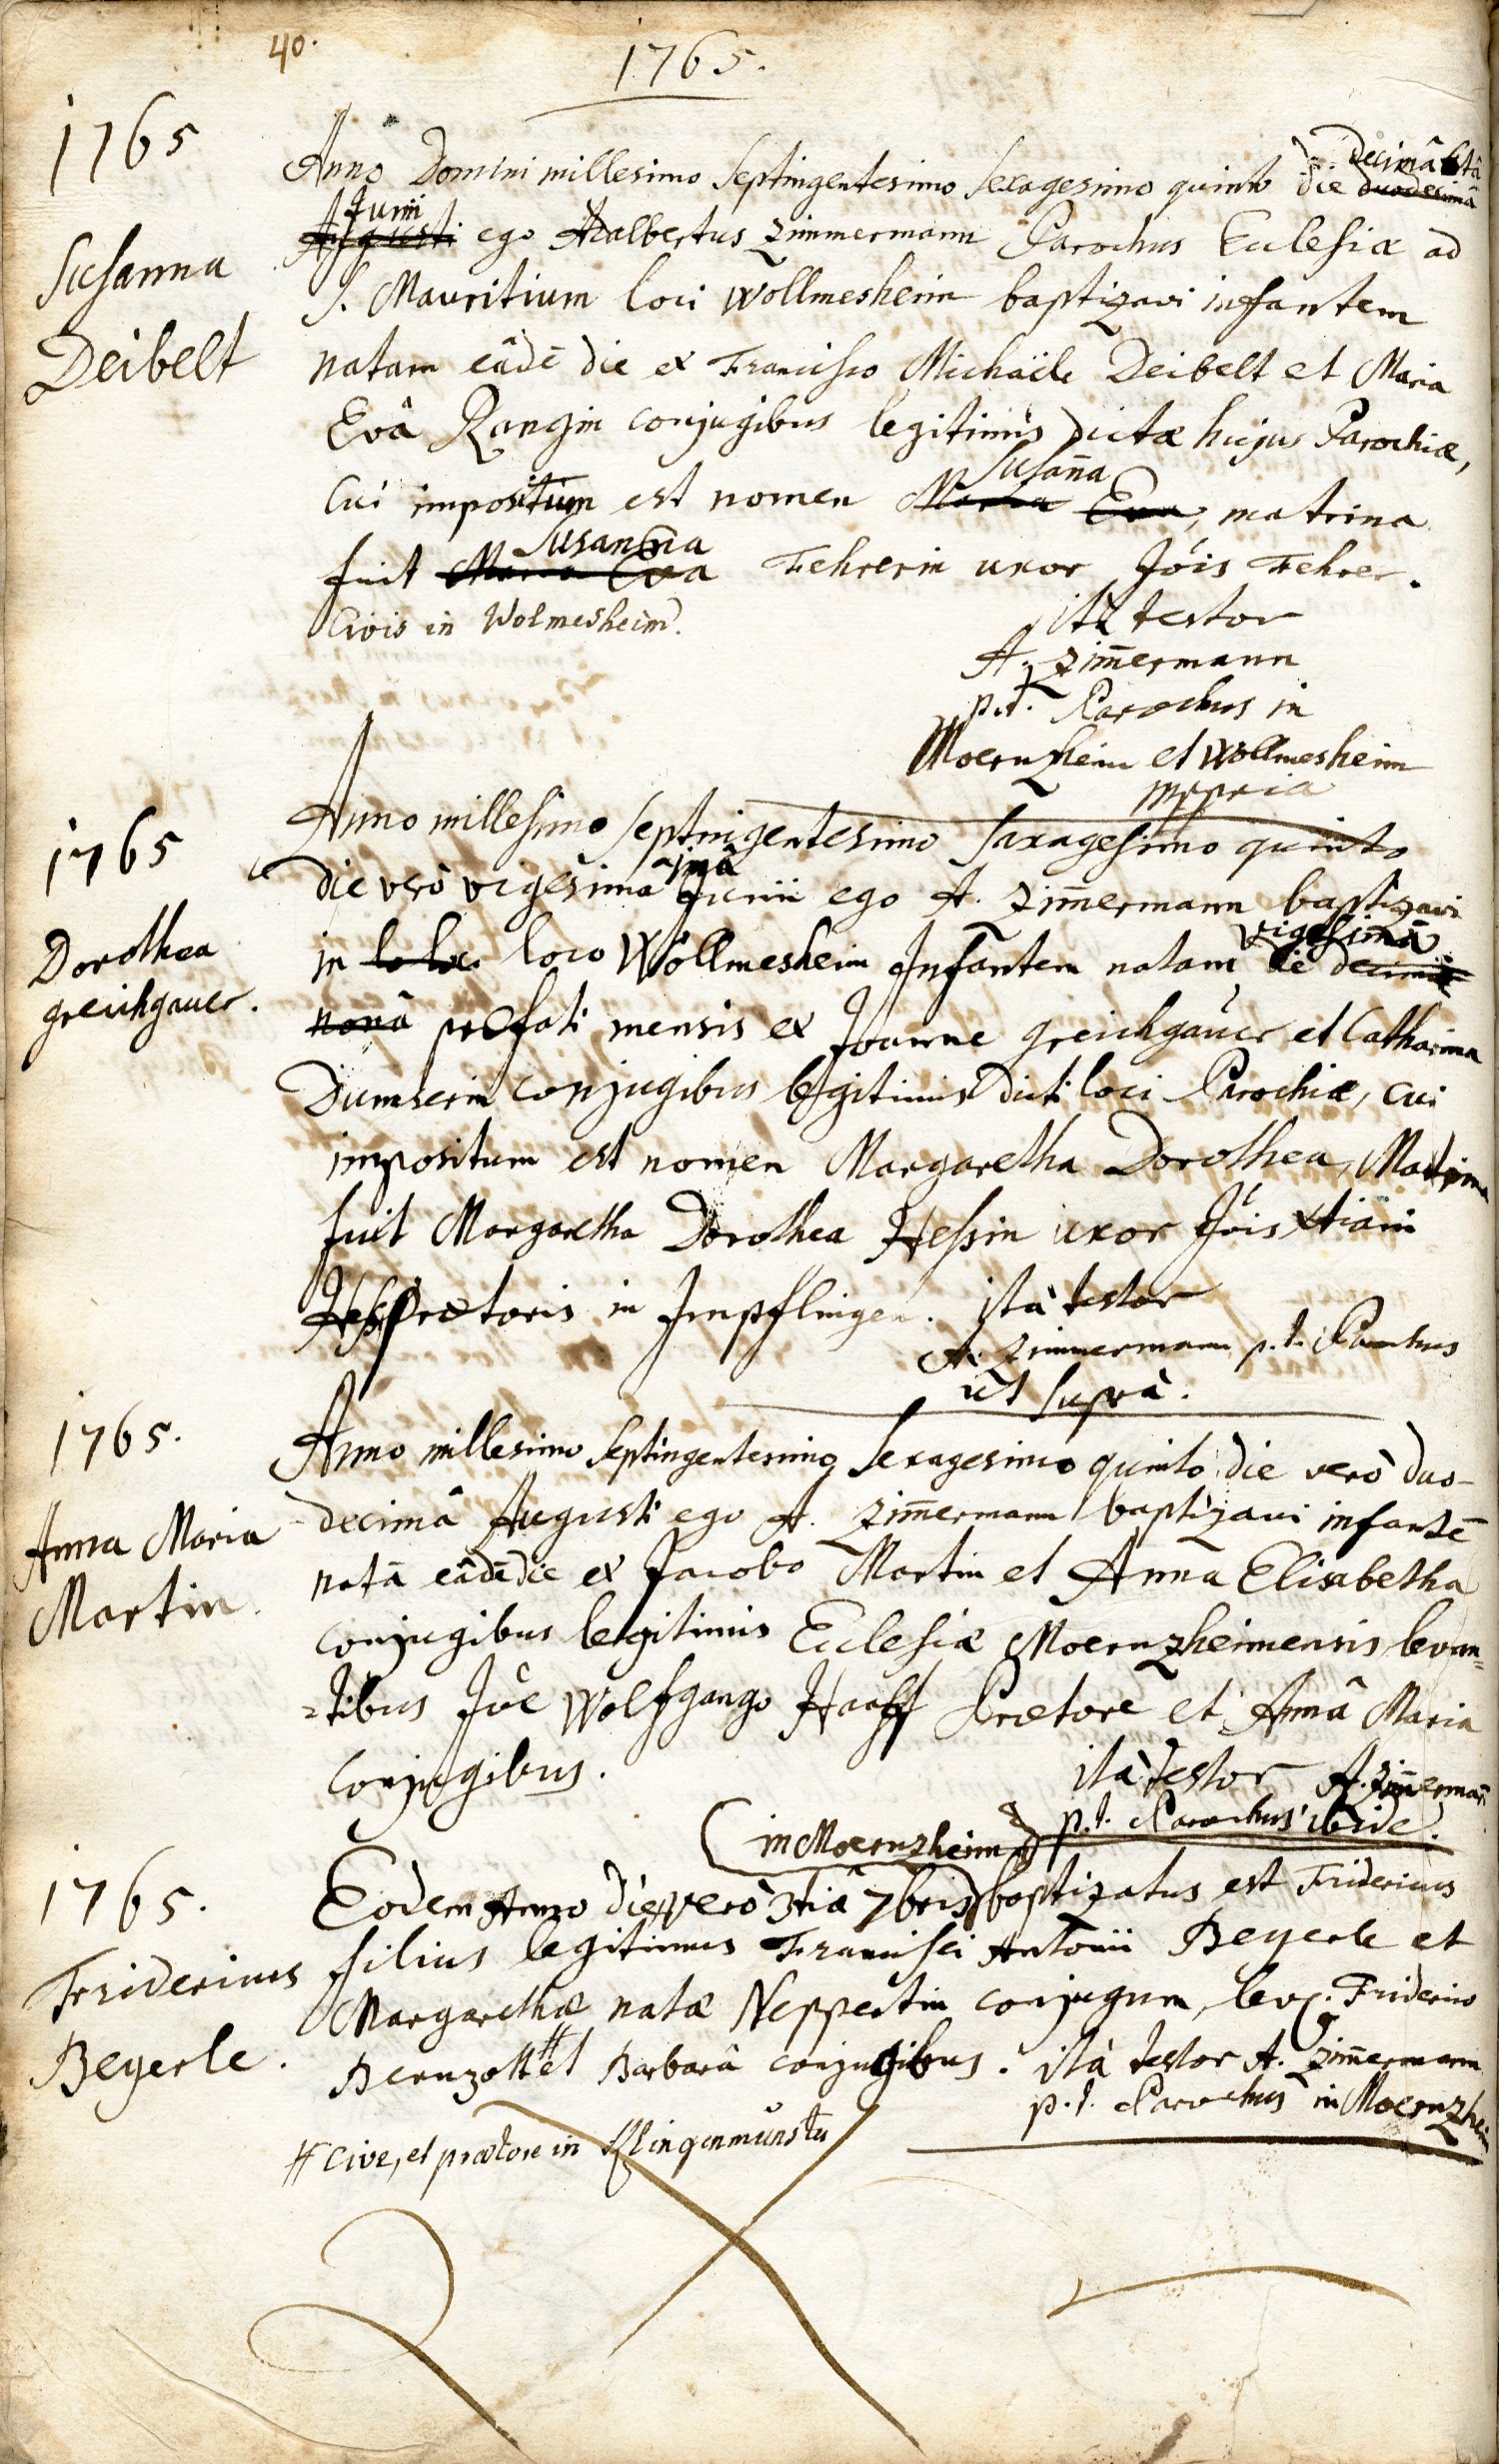 40.
1765.
1765
Susanna
Deibelt
Anno Domini millesimo septingentesimo sexagesimo quinto die duodecimâ
decimâ 6tâ
Junii
Augusti ego Adalbertus Zimmermann Parochus Eclesiæ ad
S. Mauritium loci Wollmesheim baptizavi infantem
natam eâdē die ex Francisco Michaële Deibelt et Maria
Evâ Rangin conjugibus legitimis dictæ hujus Parochiæ,
Susan̄a
cui impositum est nomen Maria Eva, matrina
Susanna
fuit Maria Eva Fehrerin uxor Jōis Fehrer.
Civis in Wolmesheim.
ità testor
A. Zim̄ermann
p.t. Parochus in
Moernzheim et Wollmesheim
mppria
1765
Dorothea
greichgauer.
Anno millesimo septingentesimo saxagesimo quinto
die verò vigesimâ Junii ego A. Zim̄ermann baptizavi
vigesimâ
in loco Wöllmesheim Infantem natam die decimâ
nonâ præfati mensis ex Joanne greichgaŭer et Catharina
Dumserin conjugibus legitimis dicti loci Parochiæ, cui
impositum est nomen Margaretha Dorothea, Matrina
fuit Margaretha Dorothea Hessin uxor Jōis Xtiani
Hess Prætoris in Impflingen. ità testor
A. Zimmermann p.t. Parochus
ut suprà.
1765.
Anna Maria
Martin
Anno millesimo septingentesimo sexagesimo quinto die verò duo-
decimâ Augusti ego A. Zim̄ermann baptizavi infantē
natā eâdē die ex Jacobo Martin et Anna Elisabetha
conjugibus legitimis Eclesiæ Moernzheimensis levan=
=tibus Jōe Wolfgango Haaff Prætore et Annâ Maria
conjugibus.
ità testor A. Zim̄erman̄
p.t. Parochus ibidē.
1765.
Fridericus
Beyerle.
(in Moernzheim)
Eodem Anno die verò 3tiâ 7bris baptizatus est Fridericus
filius legitimus Francisci Antonii Beyerle et
Margarethæ natæ Neppertin conjugum, lev. Friderico
Bernzott # et Barbarâ conjugibus. ità testor A. Zim̄ermann
p.t. Parochus in Moernzheim
# Cive, et prætore in Klingenmünster